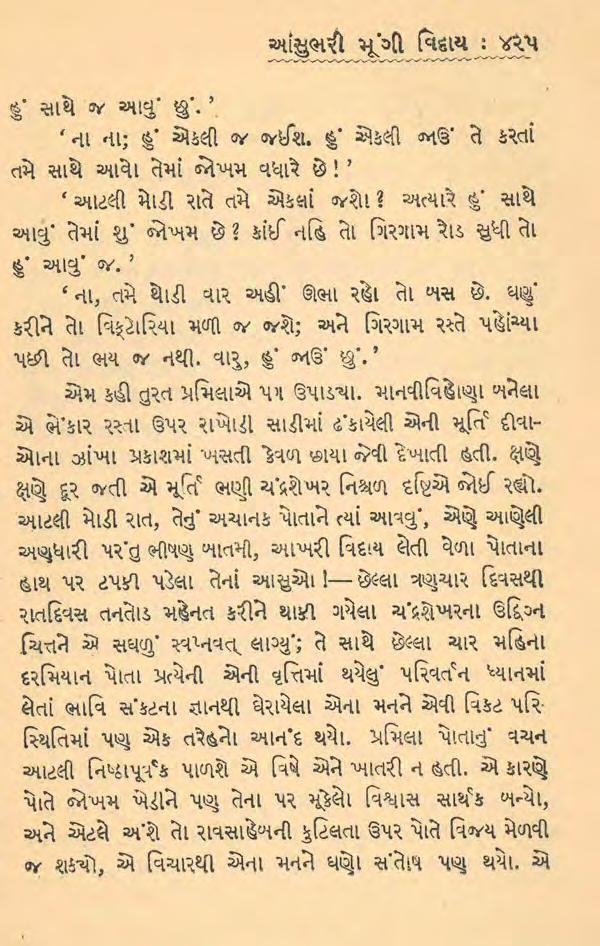 આંસુભરી મૂંગી વિદાય : ૪૨૫
હું સાથે જ આવું છું.’
‘ના ના; હું એકલી જ જઈશ. હું એકલી જાઉં તે કરતાં
તમે સાથે આવો તેમાં જોખમ વધારે છે!’
‘આટલી મોડી રાતે તમે એકલાં જશો? અત્યારે હું સાથે
આવું તેમાં શું જોખમ છે? કાંઈ નહિ તો ગિરગામ રોડ સુધી તો
હું આવું જ.’
‘ના, તમે થોડી વાર અહીં ઊભા રહો તો બસ છે. ઘણું
કરીને તો વિક્ટોરિયા મળી જ જશે; અને ગિરગામ રસ્તે પહોંચ્યા
પછી તો ભય જ નથી. વારુ, હું જાઉં છું.’
એમ કહી તુરત પ્રમિલાએ પગ ઉપાડ્યા. માનવીવિહોણા બનેલા
એ ભેંકાર રસ્તા ઉપર રાખોડી સાડીમાં ઢંકાયેલી એની મૂર્તિ દીવા-
ઓના ઝાંખા પ્રકાશમાં ખસતી કેવળ છાયા જેવી દેખાતી હતી. ક્ષણે
ક્ષણે દૂર જતી એ મૂર્તિ ભણી ચંદ્રશેખર નિશ્ચળ દૃષ્ટિએ જોઈ રહ્યો.
આટલી મોડી રાત, તેનું અચાનક પોતાને ત્યાં આવવું, એણે આણેલી
અણધારી પરંતુ ભીષણ બાતમી, આખરી વિદાય લેતી વેળા પોતાના
હાથ પર ટપકી પડેલા તેનાં આસુઓ!— છેલ્લા ત્રણચાર દિવસથી
રાતદિવસ તનતોડ મહેનત કરીને થાકી ગયેલા ચંદ્રશેખરના ઉદ્વિગ્ન
ચિત્તને એ સઘળું સ્વપ્નવત્ લાગ્યું; તે સાથે છેલ્લા ચાર મહિના
દરમિયાન પોતા પ્રત્યેની એની વૃત્તિમાં થયેલું પરિવર્તન ધ્યાનમાં
લેતાં ભાવિ સંકટના જ્ઞાનથી ઘેરાયેલા એના મનને એવી વિકટ પરિ-
સ્થિતિમાં પણ એક તરેહનો આનંદ થયો. પ્રમિલા પોતાનું વચન
આટલી નિષ્ઠાપૂર્વક પાળશે એ વિષે એને ખાતરી ન હતી. એ કારણે
પોતે જોખમ ખેડીને પણ તેના પર મૂકેલો વિશ્વાસ સાર્થક બન્યો,
અને એટલે અંશે તો રાવસાહેબની કુટિલતા ઉપર પોતે વિજય મેળવી
જ શક્યો, એ વિચારથી એના મનને ઘણો સંતોષ પણ થયો. એ